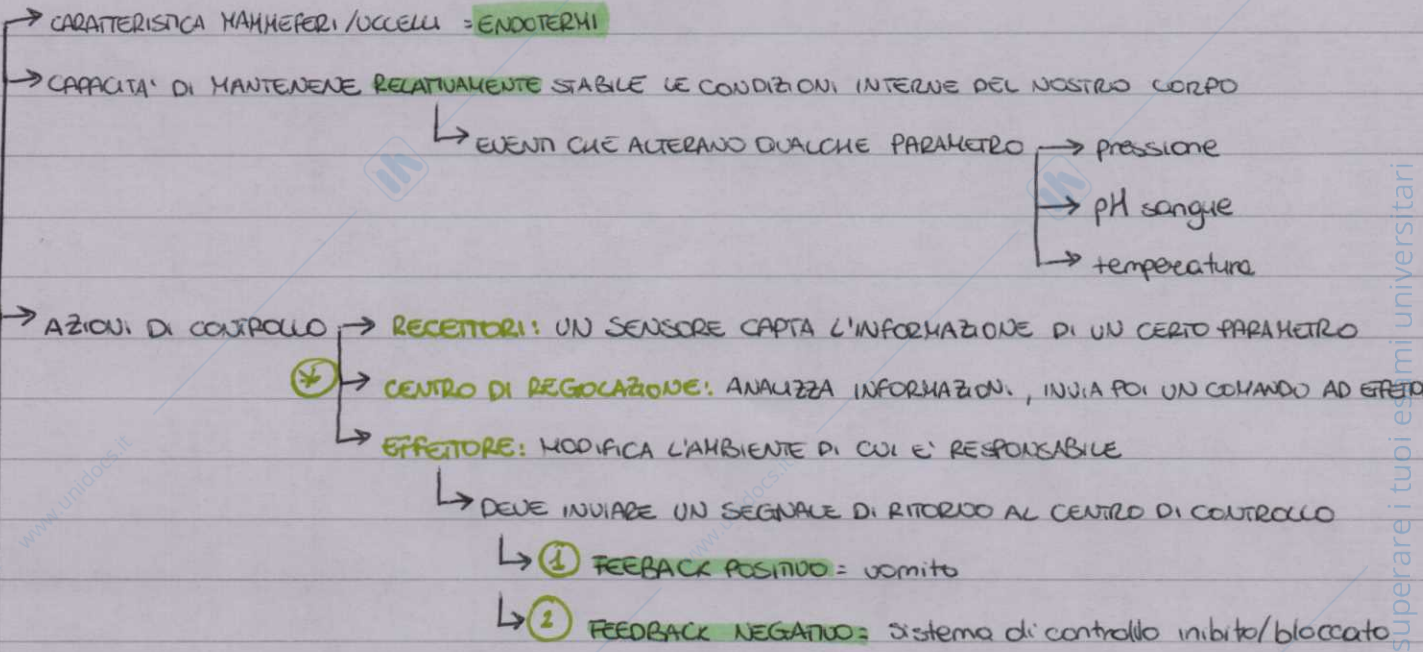 → CARATTERISTICA MAMMEFERI/UCCELLI = ENDOTERMI
→ CAPACITA' DI MANTENENE RELATIVAMENTE STABILE LE CONDIZIONI INTERNE DEL NOSTRO CORPO
↳ EVENTI CHE ALTERANO QUALCHE PARAMETRO → pressione
→ pH sangue
→ temperatura
→ AZIONI DI CONTROLLO → RECETTORI: UN SENSORE CAPTA L'INFORMAZIONE DI UN CERTO PARAMETRO
* → CENTRO DI REGOLAZIONE: ANALIZZA INFORMAZIONI, INVIA POI UN COMANDO AD EFFETTO
→ EFFETTORE: MODIFICA L'AMBIENTE DI CUI E' RESPONSABILE
↳ DEVE INVIARE UN SEGNALE DI RITORNO AL CENTRO DI CONTROLLO
↳ 1 FEEBACK POSITIVO = vomito
↳ 2 FEEDBACK NEGATIVO = sistema di controllo inibito/bloccato
www.unidocs.it
superare i tuoi esami universitari